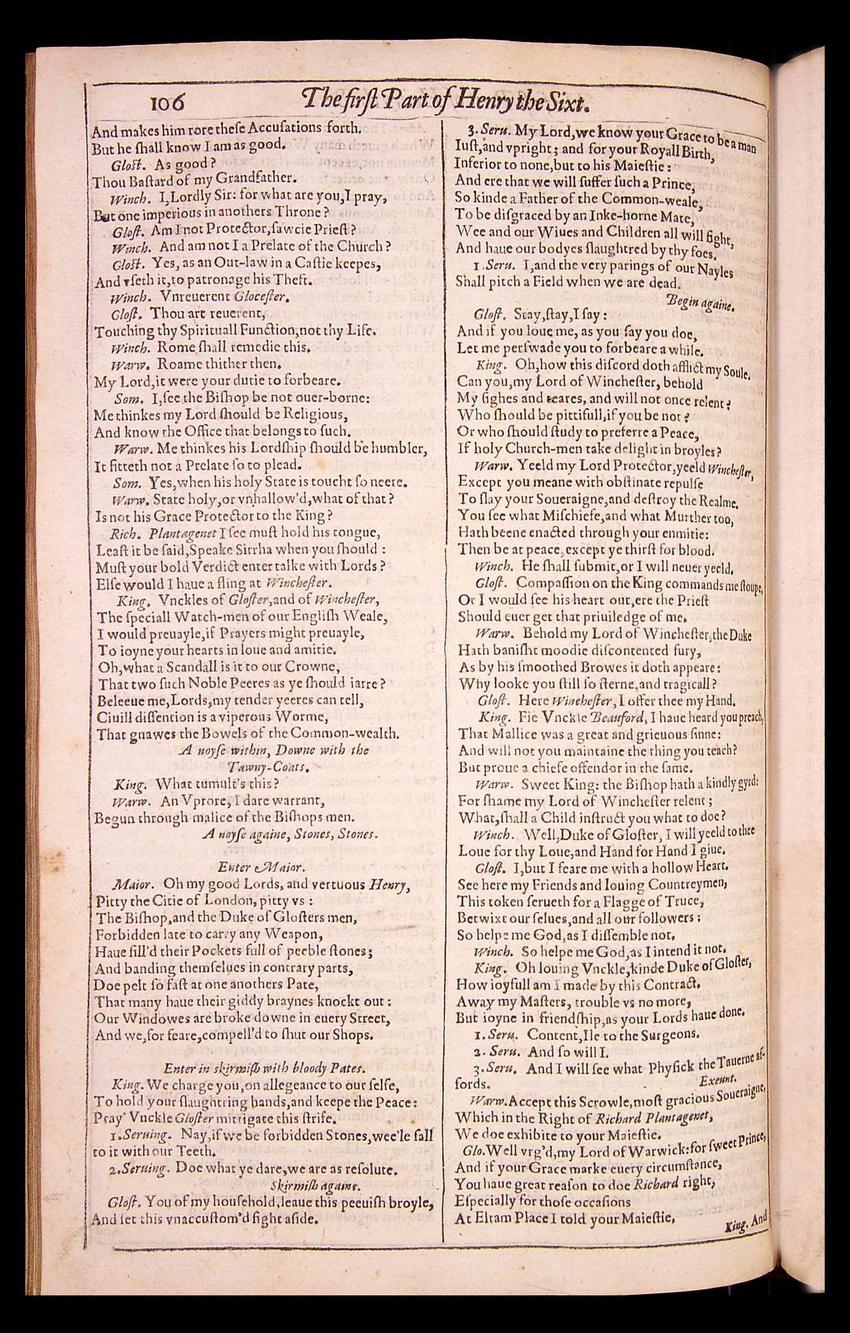 106
The first Part of Henry the Sixt.
And makes him rore these Accusations forth.
But he shall know I am as good.
Glost. As good?
Thou Bastard of my Grandfather.
Winch. I, Lordly Sir: for what are you, I pray,
But one imperious in anothers Throne?
Glost. Am I not Protector, sawcie Priest?
Winch. And am not I a Prelate of the Church?
Glost. Yes, as an Out-law in a Castle keepes,
And vseth it, to patronage his Theft.
Winch. Vnreuerent Glocester.
Glost. Thou art reuerent,
Touching thy Spirituall Function, not thy Life.
Winch. Rome shall remedie this.
Warw. Roame thither then.
My Lord, it were your dutie to forbeare.
Som. I, see the Bishop be not ouer-borne:
Me thinkes my Lord should be Religious,
And know the Office that belongs to such.
Warw. Me thinkes his Lordship should be humbler,
It fitteth not a Prelate so to plead.
Som. Yes, when his holy State is toucht so neere.
Warw. State holy, or vnhallow'd, what of that?
Is not his Grace Protector to the King?
Rich. Plantagenet I see must hold his tongue,
Least it be said, Speake Sirrha when you should:
Must your bold Verdict enter talke with Lords?
Else would I haue a fling at Winchester.
King. Vnckles of Gloster, and of Winchester,
The speciall Watch-men of our English Weale,
I would preuayle, if Prayers might preuayle,
To ioyne your hearts in loue and amitie.
Oh, what a Scandall is it to our Crowne,
That two such Noble Peeres as ye should iarre?
Beleeue me, Lords, my tender yeeres can tell,
Ciuill dissention is a viperous Worme,
That gnawes the Bowels of the Common-wealth.
A noyse within, Downe with the
Tawny-Coats.
King. What tumult's this?
Warw. An Vprore, I dare warrant,
Begun through malice of the Bishops men.
A noyse againe, Stones, Stones.
Enter Maior.
Maior. Oh my good Lords, and vertuous Henry,
Pitty the Citie of London, pitty vs:
The Bishop, and the Duke of Glosters men,
Forbidden late to carry any Weapon,
Haue fill'd their Pockets full of peeble stones;
And banding themselues in contrary parts,
Doe pelt so fast at one anothers Pate,
That many haue their giddy braynes knockt out:
Our Windowes are broke downe in euery Street,
And we, for feare, compell'd to shut our Shops.
Enter in skirmish with bloody Pates.
King. We charge you, on allegeance to our selfe,
To hold your slaughtring hands, and keepe the Peace:
Pray' Vnckle Gloster mittigate this strife.
1. Seruing. Nay, if we be forbidden Stones, wee'le fall
to it with our Teeth.
2. Seruing. Doe what ye dare, we are as resolute.
Skirmish againe.
Glost. You of my houshold, leaue this peeuish broyle,
And set this vnaccustom'd fight aside.
3. Seru. My Lord, we know your Grace to be a man
Iust, and vpright; and for your Royall Birth,
Inferior to none, but to his Maiestie:
And ere that we will suffer such a Prince,
So kinde a Father of the Common-weale,
To be disgraced by an Inke-horne Mate,
Wee and our Wiues and Children all will fight,
And haue our bodyes slaughtred by thy foes.
1. Seru. I, and the very parings of our Nayles
Shall pitch a Field when we are dead.
Begin againe.
Glost. Stay, stay, I say:
And if you loue me, as you say you doe,
Let me perswade you to forbeare a while.
King. Oh, how this discord doth afflict my Soule.
Can you, my Lord of Winchester, behold
My sighes and teares, and will not once relent?
Who should be pittifull, if you be not?
Or who should study to preferre a Peace,
If holy Church-men take delight in broyles?
Warw. Yeeld my Lord Protector, yeeld Winchester,
Except you meane with obstinate repulse
To slay your Soueraigne, and destroy the Realme.
You see what Mischiefe, and what Murther too,
Hath beene enacted through your enmitie:
Then be at peace, except ye thirst for blood.
Winch. He shall submit, or I will neuer yeeld.
Glost. Compassion on the King commands me stoupe,
Or I would see his heart out, ere the Priest
Should euer get that priuiledge of me.
Warw. Behold my Lord of Winchester, the Duke
Hath banisht moodie discontented fury,
As by his smoothed Browes it doth appeare:
Why looke you still so sterne, and tragicall?
Glost. Here Winchester, I offer thee my Hand.
King. Fie Vnckle Beauford, I haue heard you preach,
That Mallice was a great and grieuous sinne:
And will not you maintaine the thing you teach?
But proue a chiefe offendor in the same.
Warw. Sweet King: the Bishop hath a kindly gyrd:
For shame my Lord of Winchester relent;
What, shall a Child instruct you what to doe?
Winch. Well, Duke of Gloster, I will yeeld to thee
Loue for thy Loue, and Hand for Hand I giue.
Glost. I, but I feare me with a hollow Heart.
See here my Friends and louing Countreymen,
This token serueth for a Flagge of Truce,
Betwixt our selues, and all our followers:
So helpe me God, as I dissemble not.
Winch. So helpe me God, as I intend it not.
King. Oh louing Vnckle, kinde Duke of Gloster,
How ioyfull am I made by this Contract.
Away my Masters, trouble vs no more,
But ioyne in friendship, as your Lords haue done.
1. Seru. Content, Ile to the Surgeons.
2. Seru. And so will I.
3. Seru. And I will see what Physick the Tauerne af-
fords. Exeunt.
Warw. Accept this Scrowle, most gracious Soueraigne,
Which in the Right of Richard Plantagenet,
We doe exhibite to your Maiestie.
Glo. Well vrg'd, my Lord of Warwick: for sweet Prince,
And if your Grace marke euery circumstance,
You haue great reason to doe Richard right,
Especially for those occasions
At Eltam Place I told your Maiestie.
King. And